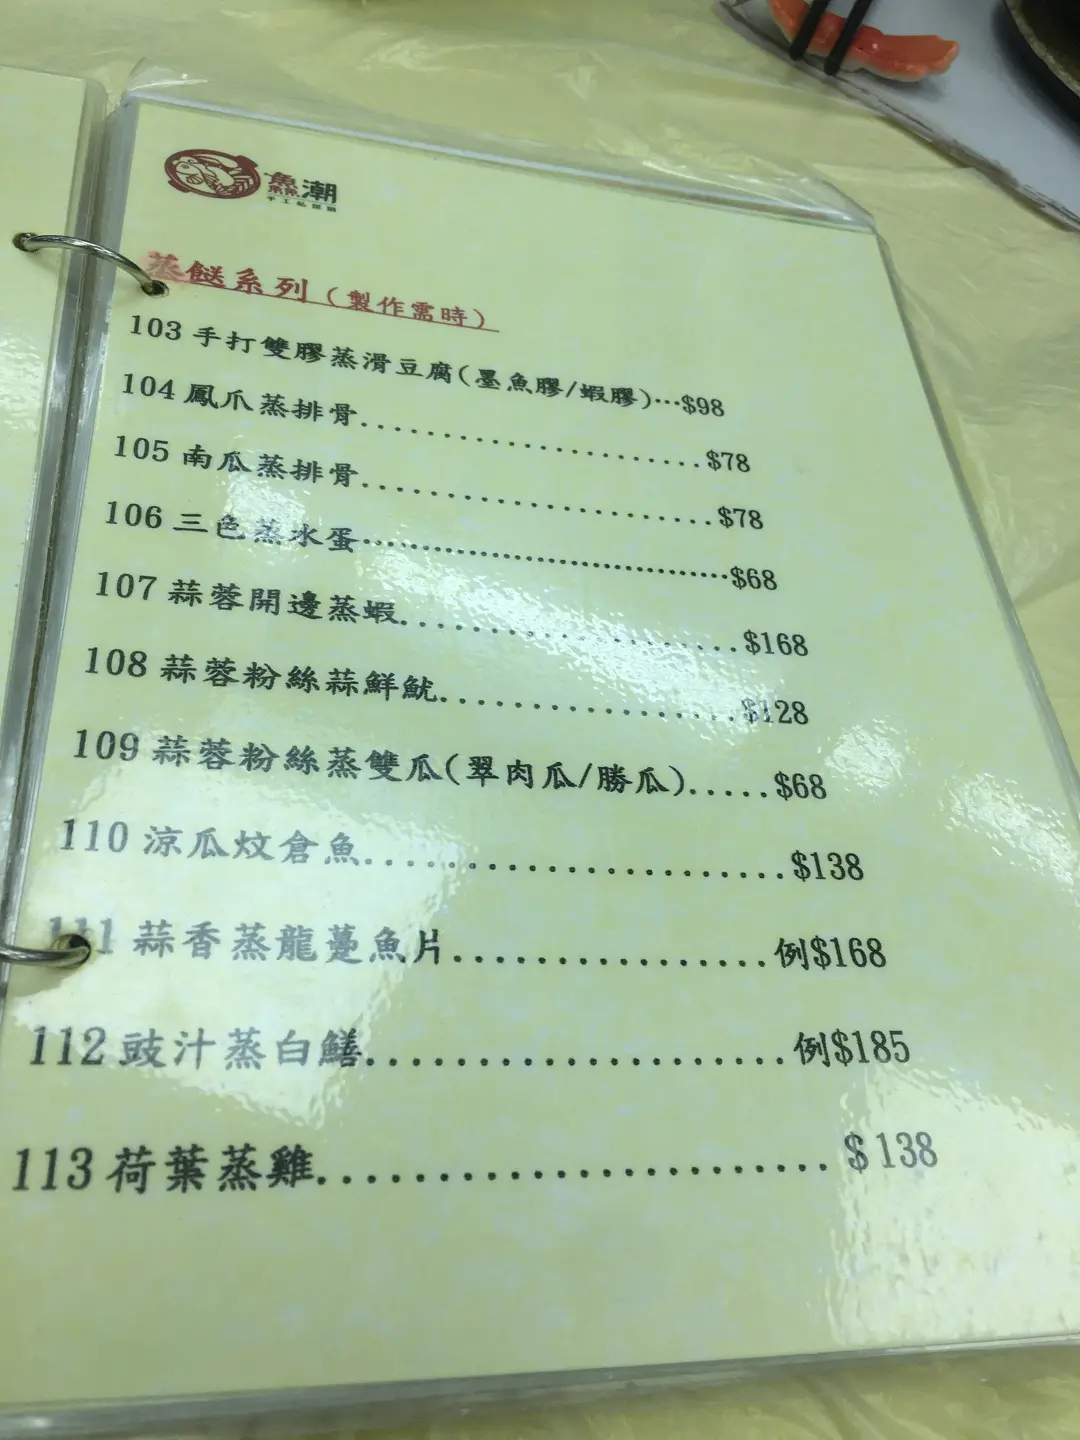 鱻潮
蒸餸系列（製作需時）
103 手打雙膠蒸滑豆腐(墨魚膠/蝦膠)…$98
104 鳳爪蒸排骨..................$78
105 南瓜蒸排骨..................$78
106 三色蒸水蛋..................$68
107 蒜蓉開邊蒸蝦..................$168
108 蒜蓉粉絲蒜鮮魷..................$128
109 蒜蓉粉絲蒸雙瓜(翠肉瓜/勝瓜).....$68
110 涼瓜炆倉魚..................$138
111 蒜香蒸龍躉魚片..................例$168
112 豉汁蒸白鱔..................例$185
113 荷葉蒸雞..................$138